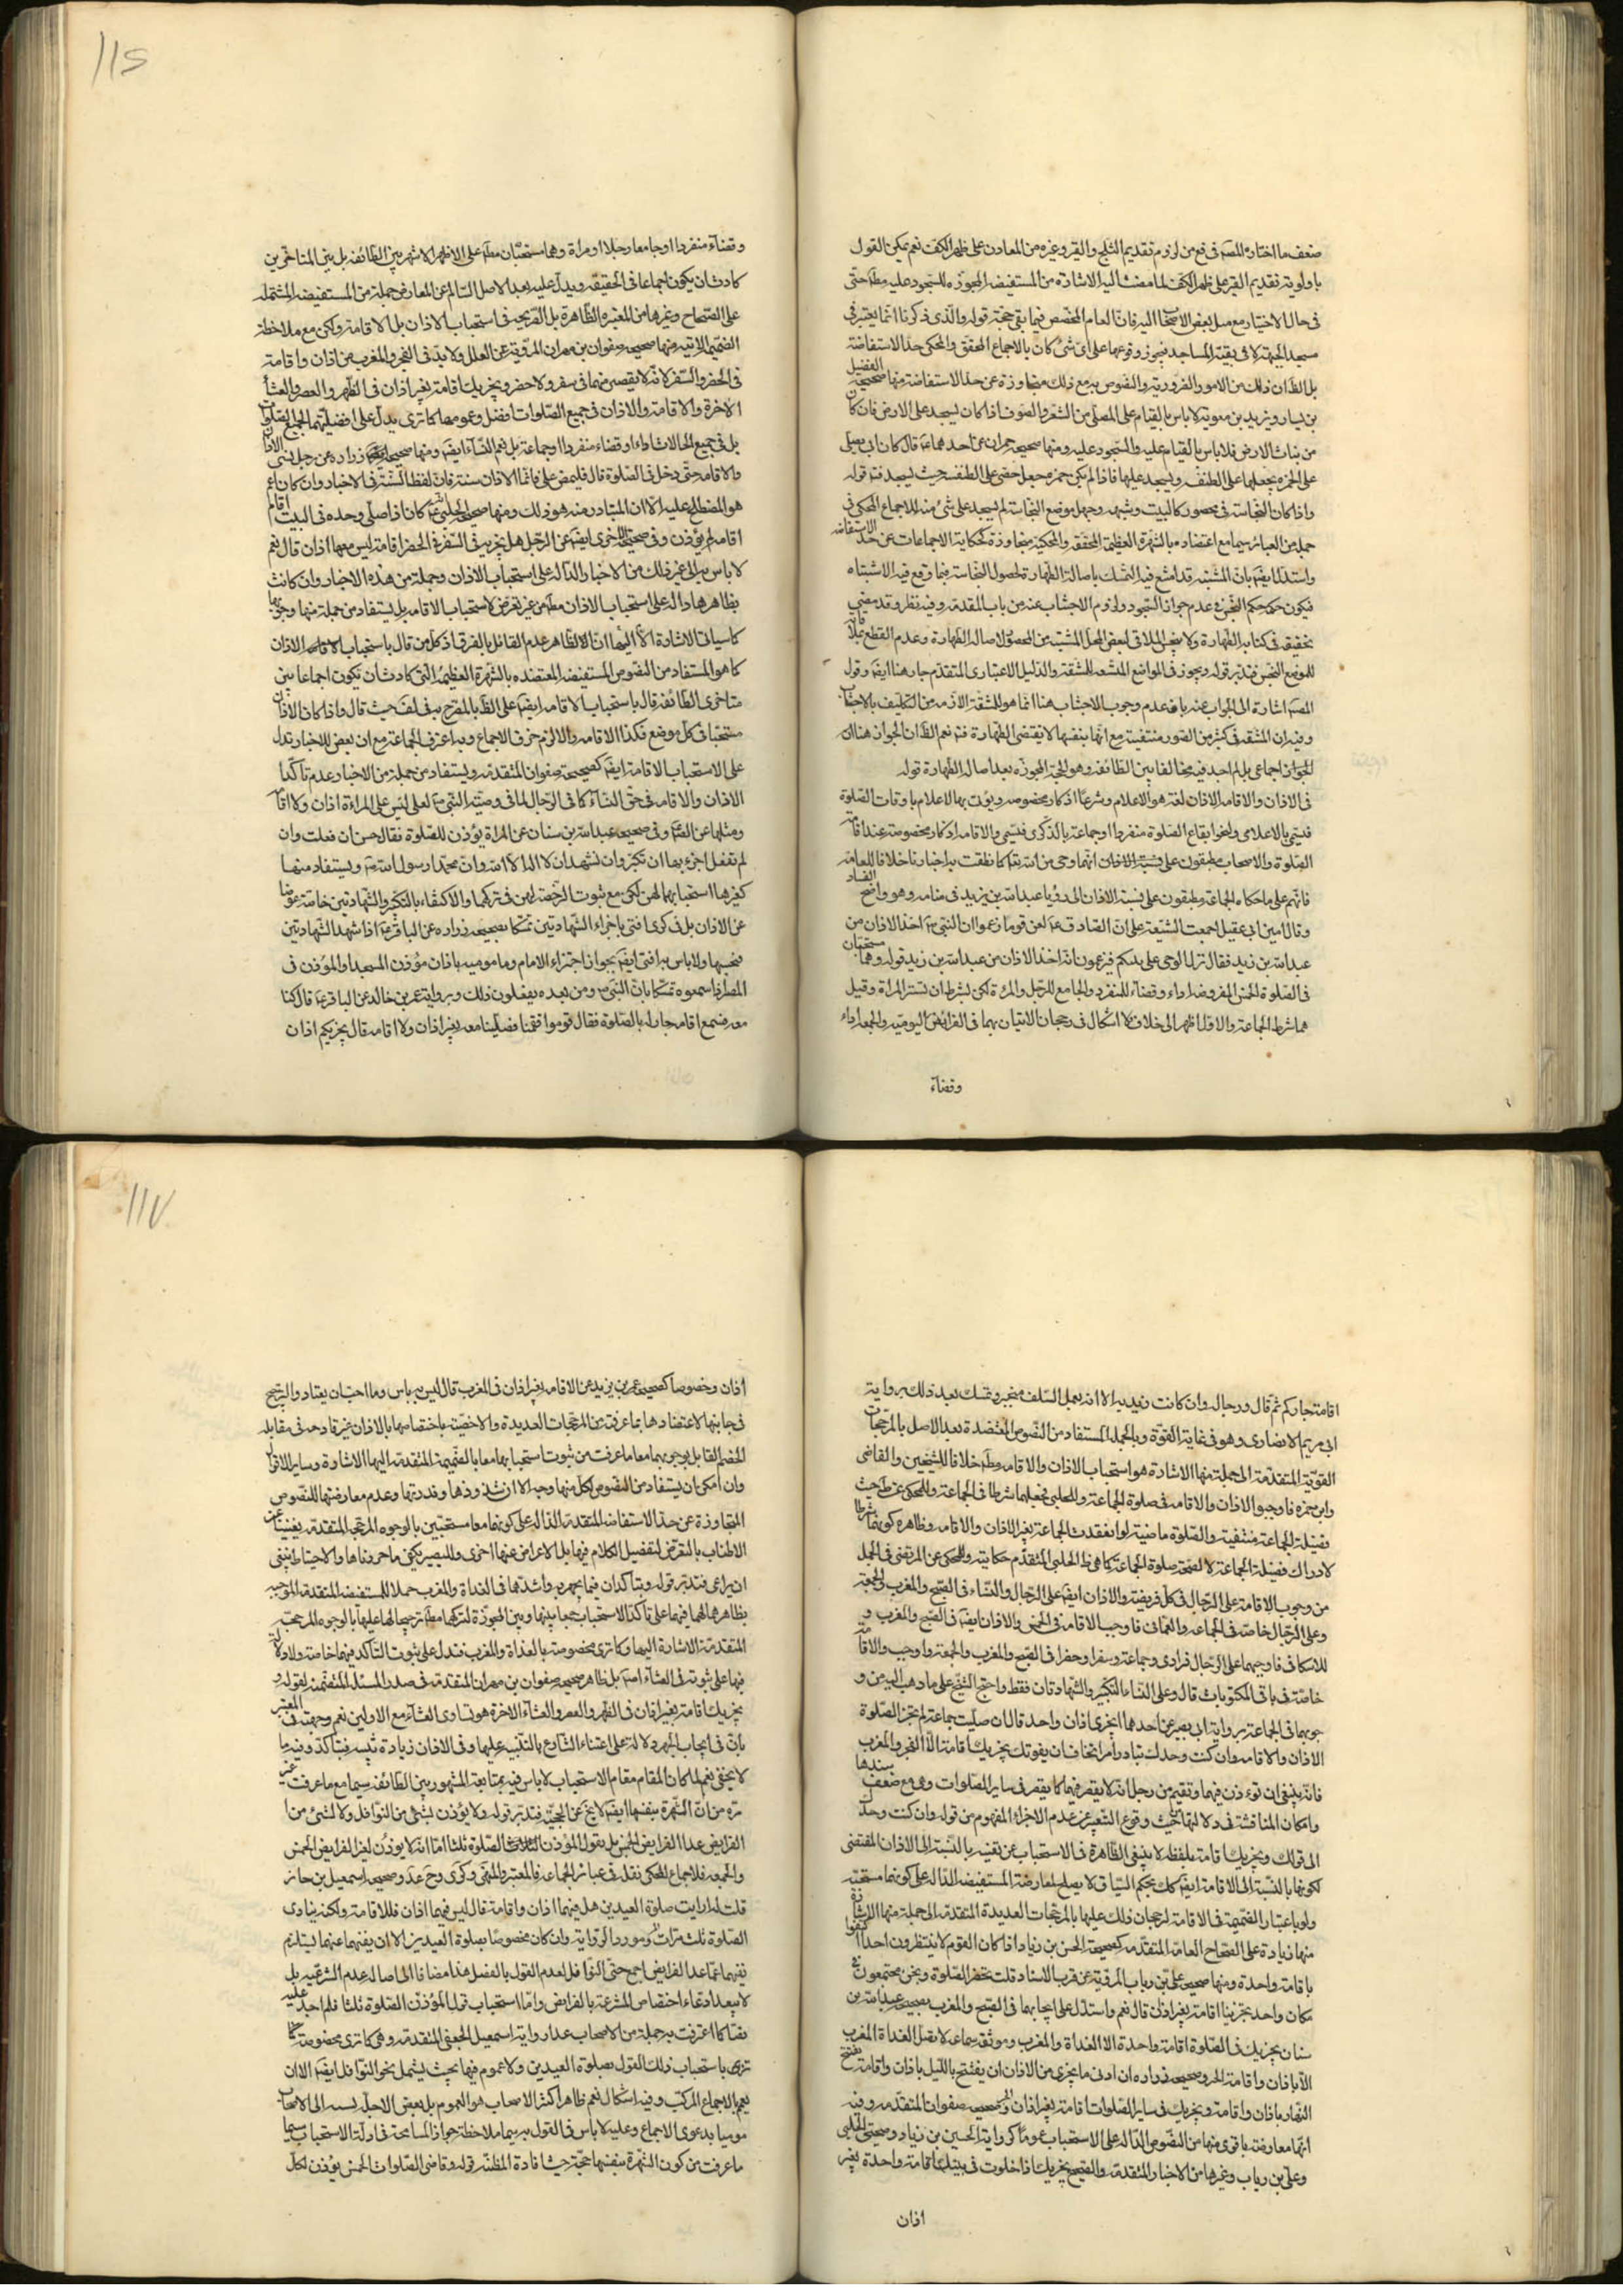 ضعف ما اختاره المصـ فى فع من لزوم تقديم الثلج والقير وغيره من المعادن على ظهر الكف نعم يمكن القول
باولوية تقديم القير على ظهر الكف لما مضت اليه الاشارة من المستفيضة المجوزه للسجود عليه مطلقا حتى
فى حال الاختيار مع ميل بعض الاصحاب اليه فان العام المخصص فيما بقى حجة قوله والذى ذكرناه انما يعتبر فى
مسجد الجبهة لا فى بقية المساجد فيجوز وقوعها على اى شئ كان بالاجماع المحقق والمحكى حد الاستفاضة
بل الظ ان ذلك من الامور الضرورية والنصوص به مع ذلك متجاوزة عن حد الاستفاضة منها صحيحة الفضيل
بن يسار وبريد بن معوية لا باس بالقيام على المصلى من الشعر والصوف اذا كان يسجد على الارض فان كان
من نبات الارض فلا باس بالقيام عليه والسجود عليه ومنها صحيحة حمران عن احدهما ع قال كان ابى يصلى
على الخمرة يجعلها على الطنفسة ويسجد عليها فاذا لم يكن خمرة جعل حصى على الطنفسة حيث يسجد قوله
واذا كان النجاسة فى محصور كالبيت وشبهه وجهل موضع النجاسة لم يسجد على شئ منه للاجماع المحكى فى
جملة من العبائر سيما مع اعتضاده بالشهرة العظيمة المحققة والمحكية متجاوزة لحكاية الاجماعات عن حد الاستفاضة
واستدل ايضا بان المشتبه قد امتنع فيه التمسك باصالة الطهارة لحصول النجاسة فيما وقع فيه الاشتباه
فيكون حكمه حكم النجس فى عدم جواز السجود ولزوم الاجتناب عنه من باب المقدمة وفيه نظر وقد مضى
تحقيقه فى كتاب الطهارة ولا ينجس الملاقى لبعض المحل المشتبه من المحصور لاصالة الطهارة وعدم القطع بملاقاته
للموضع النجس فتدبر قوله ويجوز فى المواضع المتسعة للمشقة والدليل الاعتبارى المتقدم جار هنا ايضا وقول
المصـ اشارة الى الجواب عنه بان عدم وجوب الاجتناب هنا انما هو للمشقة اللازمة من التكليف بالاجتناب
وفيه ان المشقة فى كثير من الصور منتفية مع انها بنفسها لا يقتضى الطهارة فتم نعم الظ ان الجواز هنا
اجماعى بل لم اجد فيه مخالفا بين الطائفة وهو الحجة المجوزه بعد اصالة الطهارة قوله
فى الاذان والاقامه الاذان لغة هو الاعلام وشرعا اذكار مخصوصه ويؤت بها الاعلام باوقات الصلوة
فيسمى بالاعلامى ولنحو ايقاع الصلوة منفردا او جماعة بالذكرى فيسمى والاقامه اذكار مخصوصة عند اقامة
الصلوة والاصحاب مطبقون على نسبة الاذان انها وحى من الله تعا كما نطقت به اخبارنا خلافا للعامة
فانهم على ما حكاه الجماعة مطبقون على نسبة الاذان الى رؤيا عبد الله بن يزيد فى منامه وهو واضح الفساد
وقال ابن ابى عقيل اجمعت الشيعة على ان الصادق ع لعن قوما زعموا ان النبى ص اخذ الاذان من
عبد الله بن زيد فقال نزل الوحى على نبيكم فيزعمون انه اخذ الاذان من عبد الله بن زيد قوله وهما مستحبان
فى الصلوة الخمس المفروضه اداء وقضاء للمنفرد والجامع للرجل والمرئة لكن بشرط ان تستر المراة وقيل
هما شرط الجماعة والاول اظهر الى خلاف بلا اشكال فى رجحان الاتيان بهما فى الفرائض اليوميه والجمعه اداء
وقضاء
115
وقضاء منفردا او جامعا رجلا او مراة وهما مستحبان مطلقا على الاظهر الاشهر بين الطائفة بل بين المتاخرين
كادت ان يكون اجماعا فى الحقيقة ويدل عليه بعد الاصل السالم عن المعارض جملة من المستفيضة المشتملة
على الصحاح وغيرها من المعتبره الظاهرة بل الصريحة فى استحباب الاذان بل الاقامة ولكن مع ملاحظة
الضميمة الاتية منها صحيحة صفوان بن مهران المروية عن العلل ولا بد فى الفجر والمغرب من اذان واقامة
فى الحضر والسفر لانه لا يقصر فيهما فى سفر ولا حضر ويجزيك اقامة بغير اذان فى الظهر والعصر والعشاء
الاخرة والاقامة والاذان فى جميع الصلوات افضل وعمومها كما ترى يدل على افضليتهما لجميع الصلوات
بل فى جميع الحالات اداء او قضاء منفردا او جماعة بل نعم النساء ايضا ومنها صحيحة زراره عن رجل نسى الاذان
والاقامه حتى دخل فى الصلوة قال فليمض على فانما الاذان سنة فان لفظ السنة فى الاخبار وان كان اعم
هو المصطلح عليه الا ان المتبادر منه هو ذلك ومنها صحيحة الحلبى كان اذا صلى وحده فى البيت اقام
اقامة لم يؤذن وفى صحيحته الاخرى ايضا عن الرجل هل يجزيه فى السفر والحضر اقامة ليس معها اذان قال نعم
لا باس به الى غير ذلك من الاخبار الدالة على استحباب الاذان وجملة من هذه الاخبار وان كانت
بظاهرها دالة على استحباب الاذان مطلقا من غير تعرض لاستحباب الاقامه بل يستفاد من جملة منها وجوبها
كما سياتى الاشارة اليها الا ان الظاهر عدم القائل بالفرق اذ كل من قال باستحباب الاذان
كما هو المستفاد من النصوص المستفيضة المعتضده بالشهرة العظيمة التى كادت ان تكون اجماعا بين
متاخرى الطائفة قال باستحباب الاقامه ايضا على الظ بل المصرح به فى لف حيث قال واذا كان الاذان
مستحبا فى كل موضع فكذا الاقامه والا لزم خرق الاجماع وبه اعترف الجماعة مع ان بعض الاخبار تدل
على الاستحباب الاقامة ايضا كصحيحة صفوان المتقدمة ويستفاد من جملة من الاخبار عدم تاكد
الاذان والاقامه فى حق النساء كما فى الرجال لما فى وصية النبى ص لعلى ليس على المراءة اذان ولا اقامة
ومثلها عن الصم وفى صحيحة عبد الله بن سنان عن المراة يؤذن للصلوة فقال حسن ان فعلت وان
لم تفعل اجزء بها ان تكبر وان تشهد ان لا اله الا الله وان محمدا رسول الله ص ويستفاد منها
كغيرها استحبابهما لهن لكن مع ثبوت الرخصة لهن فى تركهما والاكتفاء بالتكبير والشهادتين خاصة عوضا
عن الاذان بل فى كرى افتى باجزاء الشهادتين تمسكا بصحيحة زراره عن الباقر ع اذا شهد الشهادتين
فحسبها ولا باس به افتى ايضا بجواز اجتزاء الامام ومامومية باذان مؤذن المسجد او المؤذن فى
المصر اذا سمعوه تمسكا بان النبى ص ومن بعده يفعلون ذلك وبرواية عمر بن خالد عن الباقر ع قال كنا
معه فسمع اقامه جار له بالصلوة فقال قوموا فقمنا فصلينا معه بغير اذان ولا اقامه قال يجزيكم اذان
اقامة جاركم ثم قال ورجال وان كانت زيديه الا انه بعمل السلف منجبر وتمسك بعد ذلك برواية
ابى مريم الانصارى وهو فى غاية القوة وبالجملة المستفاد من النصوص المعتضدة بعد الاصل بالمرجحات
القوية المتقدمة الى جملة منها الاشارة هو استحباب الاذان والاقامه مطلقا خلافا للشيخين والقاضى
وابن حمزه فاوجبوا الاذان والاقامه فى صلوة الجماعة وللحلبى فجعلهما شرطا فى الجماعة وللمحكى عن ط حيث
فضيلة الجماعة منتفية والصلوة ماضية لو انعقدت الجماعة بغير الاذان والاقامه وظاهره كونهما شرطا
لادراك فضيلة الجماعة لا لصحة صلوة الجماعة كما هو ظ الحلبى المتقدم حكايته وللمحكى عن المرتضى فى الجمل
من وجوب الاقامة على الرجال فى كل فريضة والاذان ايضا على الرجال والنساء فى الصبح والمغرب والجمعة
وعلى الرجال خاصة فى الجماعة والعمانى فاوجب الاقامة فى الخمس والاذان ايضا فى الصبح والمغرب و
للاسكافى فاوجبهما على الرجال فرادى وجماعة وسفرا وحضرا فى الصبح والمغرب والجمعة واوجب والاقامة
خاصة فى باقى المكتوبات قال وعلى النساء التكبير والشهادتان فقط واحتج الشيخ على ما ذهب اليه من و
جوبهما فى الجماعة برواية ابى بصير عن احدهما ايجزى اذان واحد قال ان صليت جماعة لم يجز الصلوة
الاذان والاقامة وان كنت وحدك تبادر امرا تخاف ان يفوتك يجزيك اقامة الا الفجر والمغرب
فانه ينبغى ان تؤذن فيهما وتقيم من رجل انه لا يقصر فيهما كما يقصر فى ساير الصلوات وهى مع ضعف سندها
وامكان المناقشة فى دلالتها حيث وقوع التعبير عن عدم الاجزاء المفهوم من قوله وان كنت وحدك
الى قولك ويجزيك اقامة بلفظ لا ينبغى الظاهرة فى الاستحباب عن نفسه بالنسبة الى الاذان المقتضى
لكونها بالنسبة الى الاقامة ايضا كك بحكم السياق لا يصلح لمعارضة المستفيضة الدالة على كونهما مستحبة
ولو باعتبار الضميمة فى الاقامة لرجحان ذلك عليها بالمرجحات العديدة المتقدمة الى جملة منها الاشارة
منها زيادة على الصحاح العامة المتقدمه كصحيحة الحسن بن زياد اذا كان القوم لا ينتظرون احدا اكتفوا
باقامة واحدة ومنها صحيحة على بن رباب المروية عن قرب الاسناد قلت تحضر الصلوة ونحن مجتمعون فى
مكان واحد تجزينا اقامة بغير اذان قال نعم واستدل على ايجابهما فى الصبح والمغرب بصحيحة عبد الله بن
سنان يجزيك فى الصلوة اقامة واحدة الا الغداة والمغرب وموثقة سماعة لا تصل الغداة المغرب
الا باذان واقامة وصحيحة زراره ان ادنى ما يجزى من الاذان ان يفتتح بالليل باذان واقامة ويفتتح
النهار باذان واقامة ويجزيك فى ساير الصلوات اقامة بغير اذان وصحيحة صفوان المتقدمة وفيه
انها معارضة باقوى منها من النصوص الدالة على الاستحباب عموما كرواية الحسين بن زياد وصحيحتى الحلبى
وعلى بن رياب وغيرها من الاخبار المتقدمة والصحيح يجزيك اذا خلوت فى بيتك اقامة واحدة بغير
اذان
117
اذان وخصوصا كصحيحة عمر بن يزيد عن الاقامة بغير اذان فى المغرب قال ليس به باس وما احب ان يعتاد والترجيح
فى جانبها لاعتضادها بما عرفته من المرجحات العديدة والاخصية باختصاصها بالاذان غير قادحة فى مقابلة
الخصم القائل بوجوبهما معا ما عرفت من ثبوت استحبابهما معا بالضميمة المتقدمة اليها الاشارة وساير الاقوال
وان امكن ان يستفاد من النصوص لكل منها وجه الا ان شذوذها وندرتها وعدم معارضتها للنصوص
المتجاوزة عن حد الاستفاضة المتقدمة الدالة على كونهما معا مستحبين بالوجوه المرجحة المتقدمة يغنينا عن
الاطناب بالتعرض لتفصيل الكلام فيها بل الاعراض عنها احرى وللبصير يكفى ما حررناها والاحتياط ينبغى
ان يراعى فتدبر قوله ويتاكدان فيما يجهر به واشدهما فى الغداة والمغرب حملا للمستفيضة المتقدمة الموجبة
بظاهرها لهما فيهما على تاكد الاستحباب جمعا بينها وبين المجوزة لتركهما مطلقا ترجيحا لها عليها بالوجوه المرجحة
المتقدمة الاشارة اليها وكما ترى مخصوصة بالغداة والمغرب فتدل على ثبوت التاكد فيهما خاصة ولا دلالة
فيها على ثبوته فى العشاء بل ظاهر صحيحة صفوان بن مهران المتقدمة فى صدر المسئلة المتضمنة لقوله و
يجزيك اقامة بغير اذان فى الظهر والعصر والعشاء الاخرة هو تساوى العشاء مع الاولين نعم وجهه فى المعتبر
بان فى ايجاب الجهر دلالة على اعتناء الشارع بالتنبيه عليها وفى الاذان زيادة تنبيه فيتاكد وفيه ما
لا يخفى نعم لما كان المقام مقام الاستحباب لا باس فيه بمتابعة المشهور بين الطائفة سيما مع ما عرفت غير
مرة من ان الشهرة بنفسها ايضا لا يخ عن الحجية فتدبر قوله ولا يؤذن لشئ من النوافل ولا لشئ من ا
الفرايض عدا الفرايض الخمس بل يقول المؤذن الصلوة ثلثا اما انه لا يؤذن لغير الفرايض الخمس
والجمعه فللاجماع المحكى نقله فى عبائر الجماعة
قلت له ارايت صلوة العيدين هل فيهما اذان واقامة قال ليس فيهما اذان فلا اقامة ولكنه ينادى
الصلوة ثلث مرات ومورد الرواية وان كان مخصوصا بصلوة العيدين الا ان نفيهما عنهما يستلزم
نفيهما عما عدا الفرايض اجمع حتى النوافل لعدم القول بالفصل هذا مضافا الى اصالة عدم الشرعية بل
لا يبعد ادعاء اختصاص المشرعية بالفرايض واما استحباب قول المؤذن الصلوة ثلثا فلم اجد عليه
نصا كما اعترفت به جملة من الاصحاب عدا رواية اسمعيل الجعفى المتقدمة وهى كما ترى مخصوصة
باستحباب ذلك القول بصلوة العيدين ولا عموم فيها بحيث يشمل نحو النوافل ايضا الا ان
يعم بالاجماع المركب وفيه اشكال نعم ظاهر اكثر الاصحاب هو العموم بل بعض الاجلة نسبه الى الاصحاب
موميا بدعوى الاجماع وعليه لا باس فى القول به سيما ملاحظة جواز المسامحة فى ادلة الاستحباب سيما
ما عرفت من كون الشهرة بنفسها حجة حيث افادة المظنة قوله وقاضى الصلوات الخمس يؤذن لكل